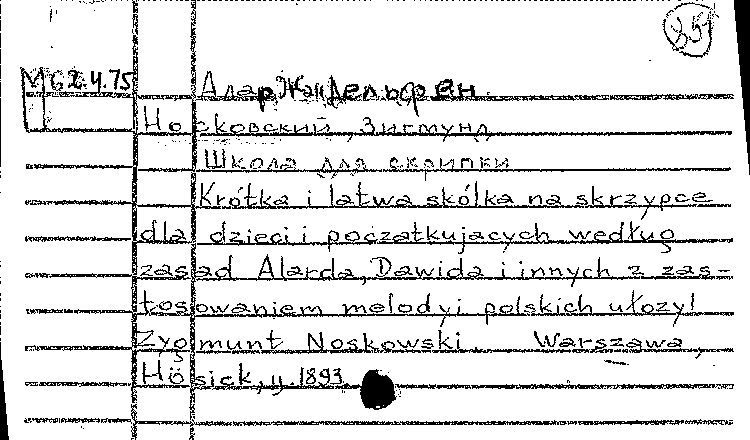 251
М 62.4.75
Алар Жан Дельфен.
Носковский, Зигмунд
Школа для скрипки
Krótka i latwa skólka na skrzypce
dla dzieci i początkujacych według
zasad Alarda, Dawida i innych z zas-
tosowaniem melodyi polskich ułozyl
Zygmunt Noskowski. Warszawa,
Hösick, y. 1893.